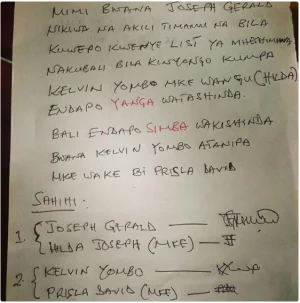 MIMI BWANA JOSEPH GERALD
NIKIWA NA AKILI TIMAMU NA BILA
KUWEPO KWENYE LIST YA
NAKUBALI BILA KINYONGO KUMPA
KELVIN YOMBO MKE WANGU (HILDA)
ENDAPO YANGA WATASHINDA.
BALI ENDAPO SIMBA WAKISHINDA
BWANA KELVIN YOMBO ATANIPA
MKE WAKE BI PRISLA DAVID
SAHIHI:
1. { JOSEPH GERALD —
HILDA JOSEPH (MKE) —
2. { KELVIN YOMBO —
PRISLA DAVID (MKE) —